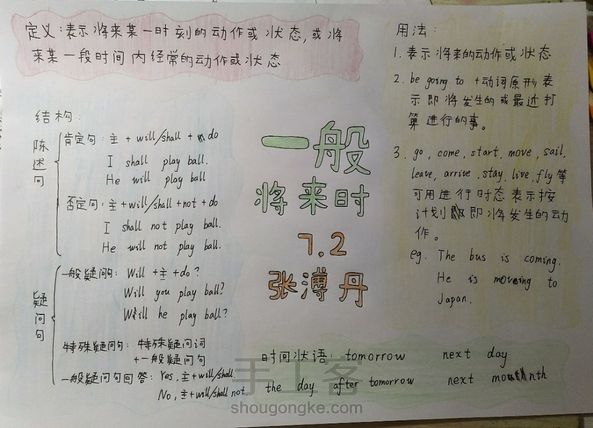 定义:表示将来某一时刻的动作或状态,或将
来某一段时间内经常的动作或状态
结构:
陈述句
肯定句:主+will/shall+do
I shall play ball.
He will play ball
否定句:主+will/shall+not+do
I shall not play ball.
He will not play ball.
疑问句
一般疑问句:Will+主+do?
Will you play ball?
Will he play ball?
特殊疑问句:特殊疑问词
+一般疑问句
一般疑问句回答:Yes,主+will/shall
No,主+will/shall not
一般
将来时
7.2
张溥丹
用法:
1.表示将来的动作或状态
2.be going to+动词原形表
示即将发生的或最近打
算进行的事。
3.go,come,start,move,sail,
leave,arrive,stay,live,fly等
可用进行时态表示按
计划即将发生的动
作。
eg. The bus is coming.
He is moveing to
Japan.
时间状语:tomorrow next day
the day after tomorrow next month
手工客
shougongke.com